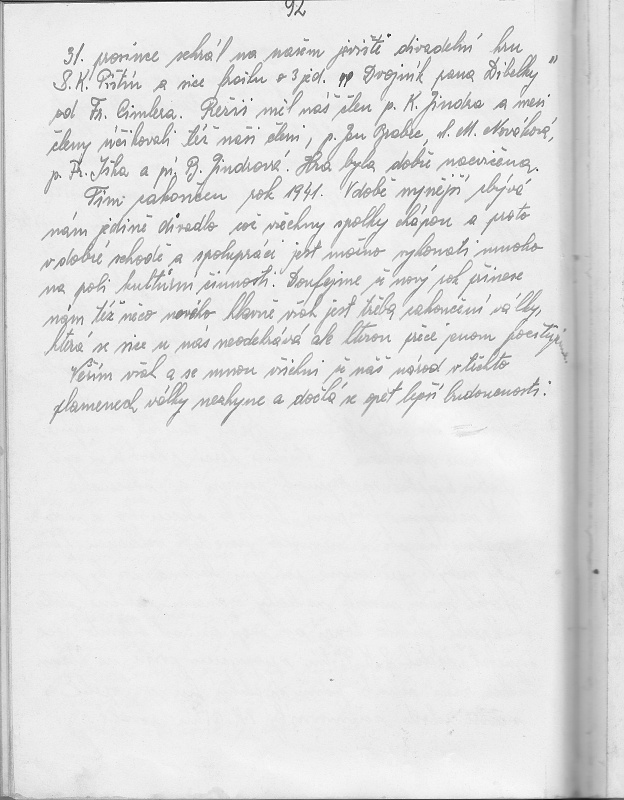 92
31. prosince sehrál na našem jevišti divadelní hru
S.K. Pištín a sice frašku o 3 jed. "Dvojník pana Dibelky"
od Fr. Cimlera. Režii měl náš člen p. K. Jindra a mezi
členy účinkovali též naši členi, p. Jan Brabec, sl. M. Nováková,
p. Fr. Jíha a pí. B. Jindrová. Hra byla dobře nacvičena.
Tím zakončen rok 1941. V době nynější zbývá
nám jedině divadlo což všechny spolky chápou a proto
v dobré schodě a spolupráci jest možno vykonati mnoho
na poli kulturní činnosti. Doufejme že nový rok přinese
nám též něco nového hlavně však jest třeba zakončení války,
která se sice u nás neodehrává ale kterou přece jenom pociťujeme.
Věřím však a se mnou všichni že náš národ v těchto
plamenech války nezhyne a dočká se opět lepší budoucnosti.